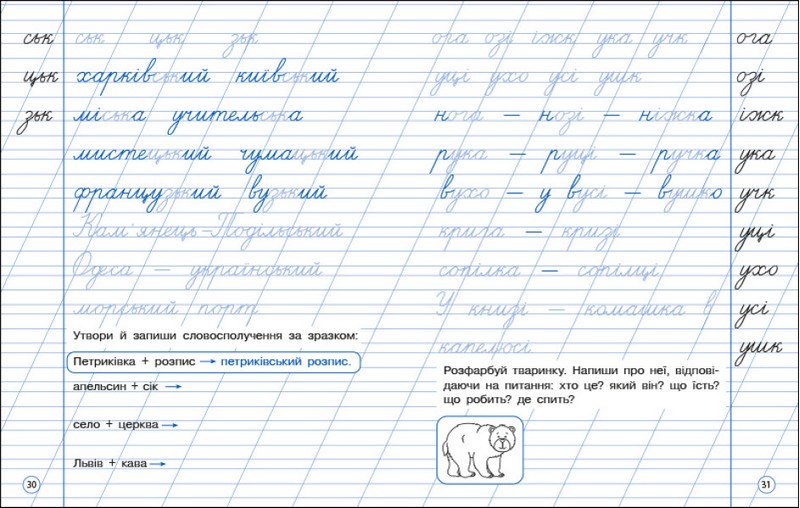 ськ ськ цьк зьк
цьк харківський київський
зьк міська учительська
мистецький чумацький
французький вузький
Кам'янець-Подільський
Одеса — український
морський порт
Утвори й запиши словосполучення за зразком:
Петриківка + розпис → петриківський розпис.
апельсин + сік →
село + церква →
Львів + кава →
30
ога озі іжк ука учк ога
уці ухо усі ушк озі
нога — нозі — ніжка іжк
рука — руці — ручка ука
вухо — у вусі — вушко учк
крига — кризі уці
сопілка — сопілці ухо
У книзі — комашка в усі
капелюсі ушк
Розфарбуй тваринку. Напиши про неї, відпові-
даючи на питання: хто це? який він? що їсть?
що робить? де спить?
31